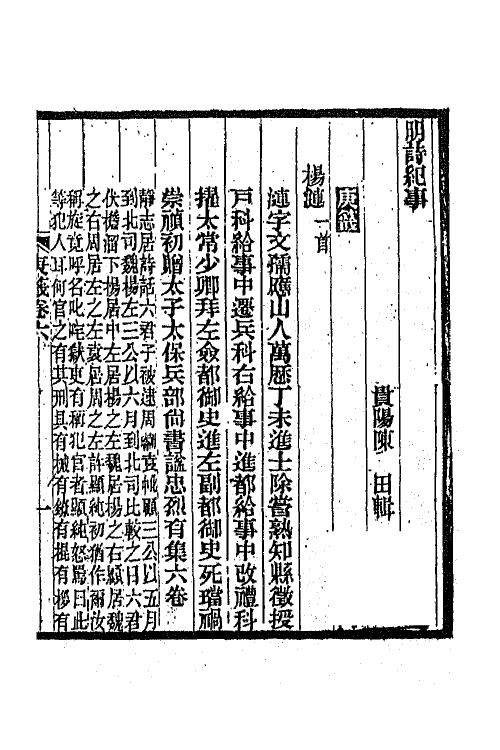 明詩紀事
貴陽陳　田輯
庚籤
楊漣一首
漣字文孺應山人萬歷丁未進士除嘗熟知縣徵授
戸科給事中遷兵科右給事中進都給事中改禮科
擢太常少卿拜左僉都御史進左副都御史死璫禍
崇禎初贈太子太保兵部尚書謚忠烈有集六卷
靜志居詩話六君子被逮周袁顧三公以五月
到北司魏楊左三公以六月到北司比較之日六君
伏檐溜下楊居中左居楊之左魏居楊之右顧居魏
之右周居左之左袁居周之左許顯純初猶作爾汝
稱旋竟呼名叱咤獄吏有稱犯官者顯純怒罵曰此
等犯人耳何官之有其刑具有械有鐐有棍有拶有
庚籤卷六
一